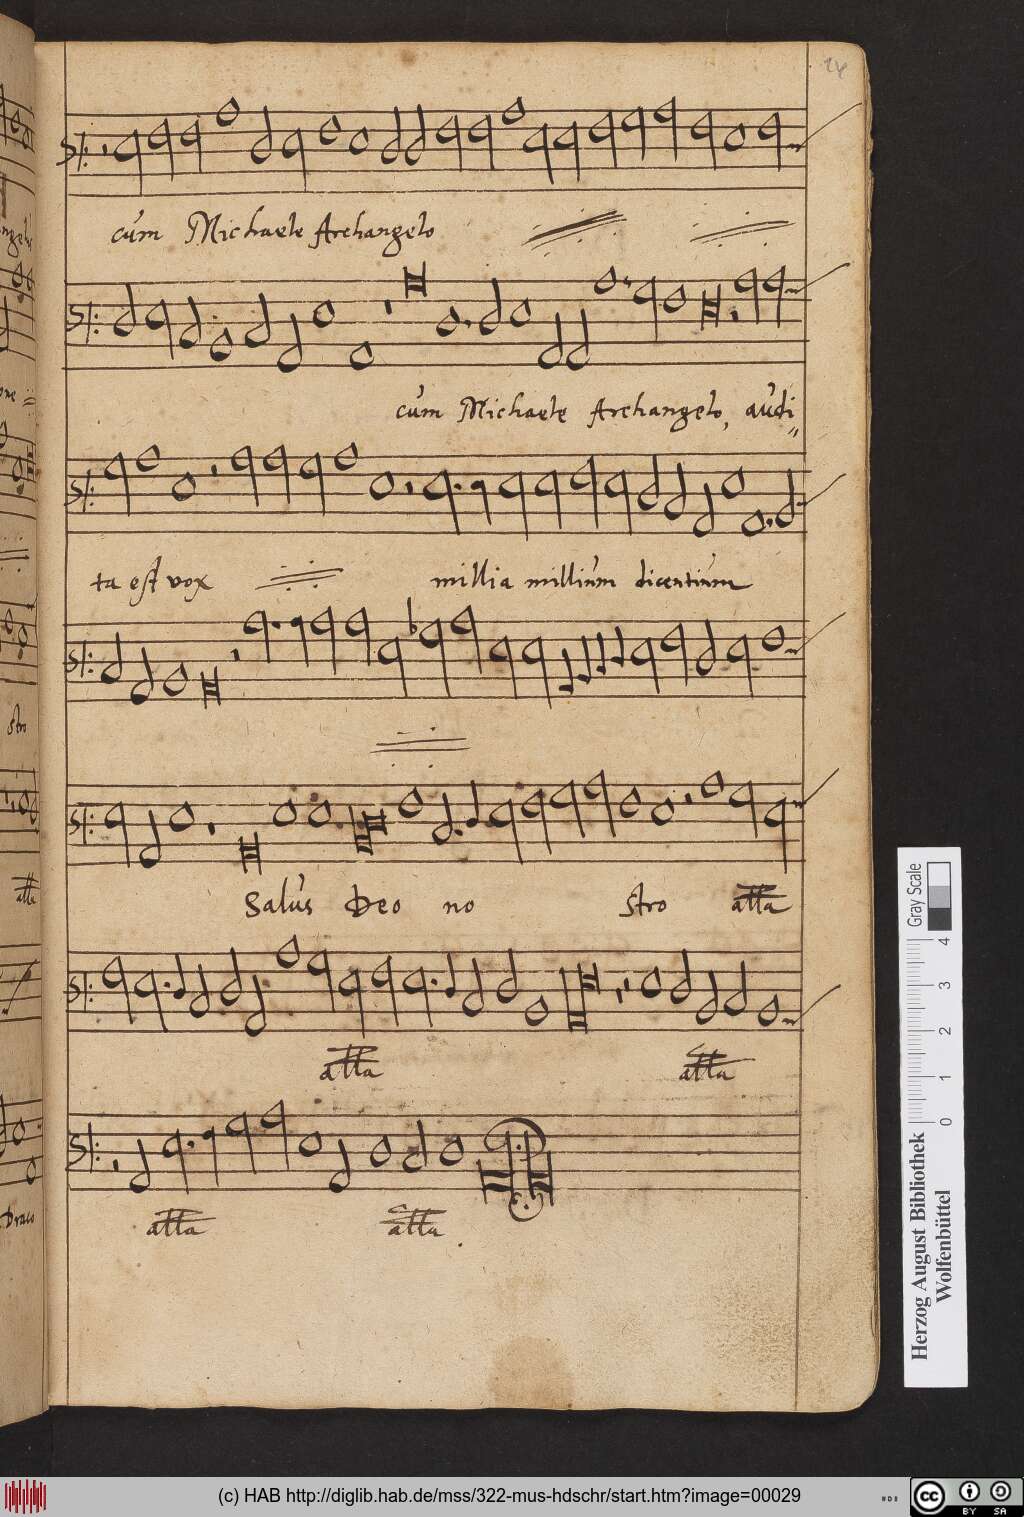 24
cum Michaele Archangelo
cum Michaele Archangelo, audi
ta est vox millia millium dicentium
Salus Deo no stro alla
alla alla
alla alla
stro
alla
Draco
Gray Scale
0 1 2 3 4
Herzog August Bibliothek
Wolfenbüttel
(c) HAB http://diglib.hab.de/mss/322-mus-hdschr/start.htm?image=00029
cc BY SA